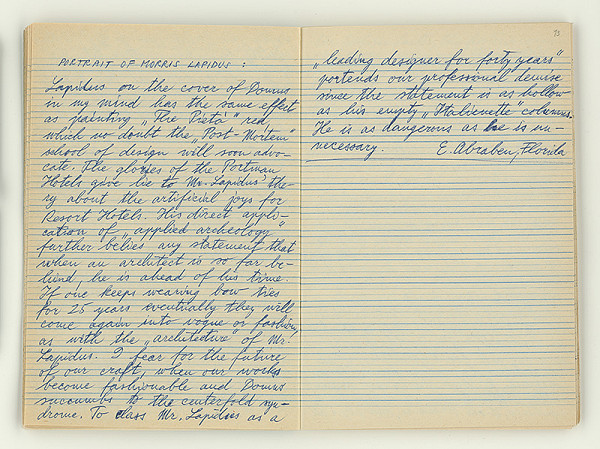 PORTRAIT OF MORRIS LAPIDUS :
Lapidus on the cover of Domus
in my mind has the same effect
as painting „The Pietà" red,
which no doubt the „Post-Mortem"
school of design will soon advo-
cate. The glories of the Portman
Hotels give lie to Mr. Lapidus' the-
ry about the artificial joys for
Resort Hotels. His direct appli-
cation of „applied archeology"
further belies any statement that
when an architect is so far be-
hind, he is ahead of his time.
If one keeps wearing bow ties
for 25 years eventually they will
come again into vogue or fashion,
as with the „architecture" of Mr.
Lapidus. I fear for the future
of our craft, when our works
become fashionable and Domus
succumbs to the centerfold syn-
drome. To class Mr. Lapidus as a
73
„leading designer for forty years"
portends our professional demise
since the statement is as hollow
as his empty „Italienette" columns.
He is as dangerous as he is un-
necessary. E. Abraben, Florida